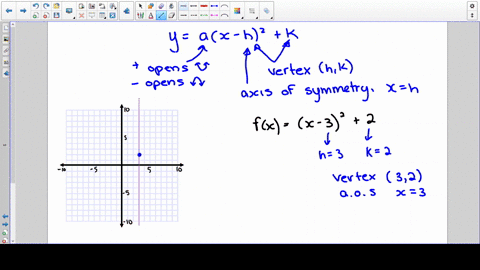 y = a(x-h)² + k
+ opens
- opens
vertex (h,k)
axis of symmetry. x=h
f(x) = (x-3)² + 2
h=3 k=2
vertex (3,2)
a.o.s x=3
10
5
-10 -5 5 10
-5
-10